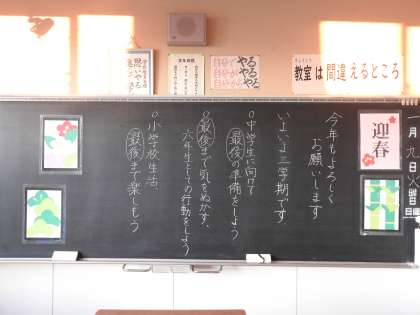 教室は間違えるところ
自分で
自分が
自分から
やる
やるぞ
やろう
迎春
一月九日火曜日
今年もよろしく
お願いします
いよいよ三学期です
○中学生に向けて
最後の準備をしよう
○最後まで気をぬかず、
六年生としての行動をしよう
○小学校生活、
最後まで楽しもう